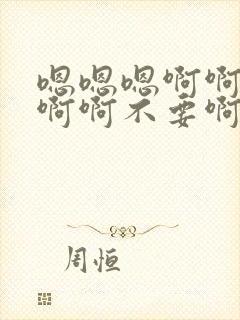 嗯嗯嗯啊啊
啊啊不要啊
周恒